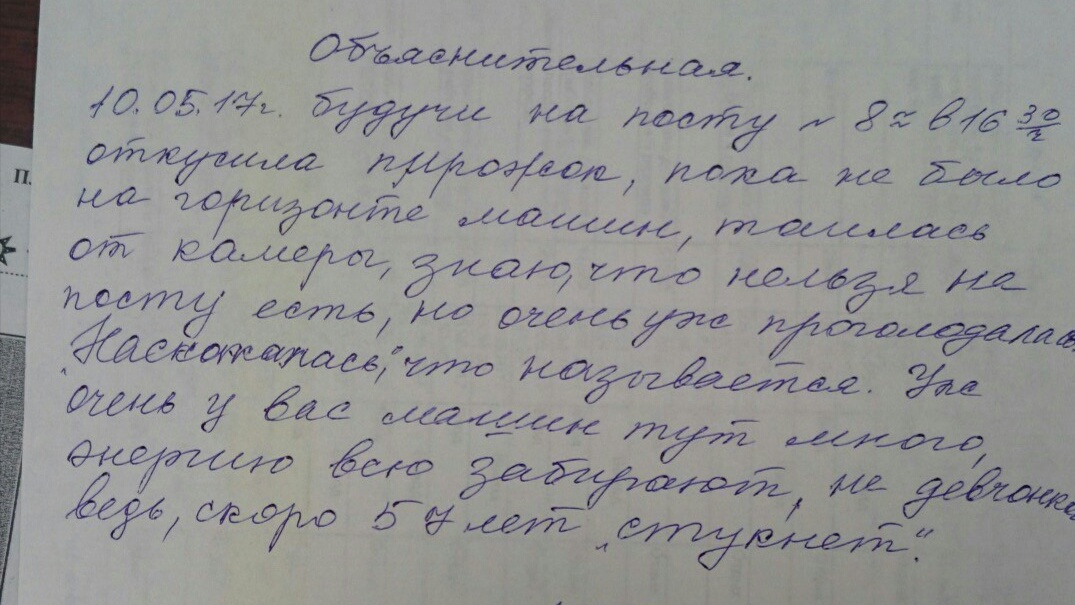 Объяснительная.
10.05.17г. будучи на посту ~ 8 ≈ в 16 30/ч
откусила пирожок, пока не было
на горизонте машин, таилась
от камеры, знаю, что нельзя на
посту есть, но очень уж проголодалась.
„Наскакалась", что называется. Уж
очень у вас машин тут много,
энергию всю забирают, не девчонка
ведь, скоро 57 лет „стукнет".
П